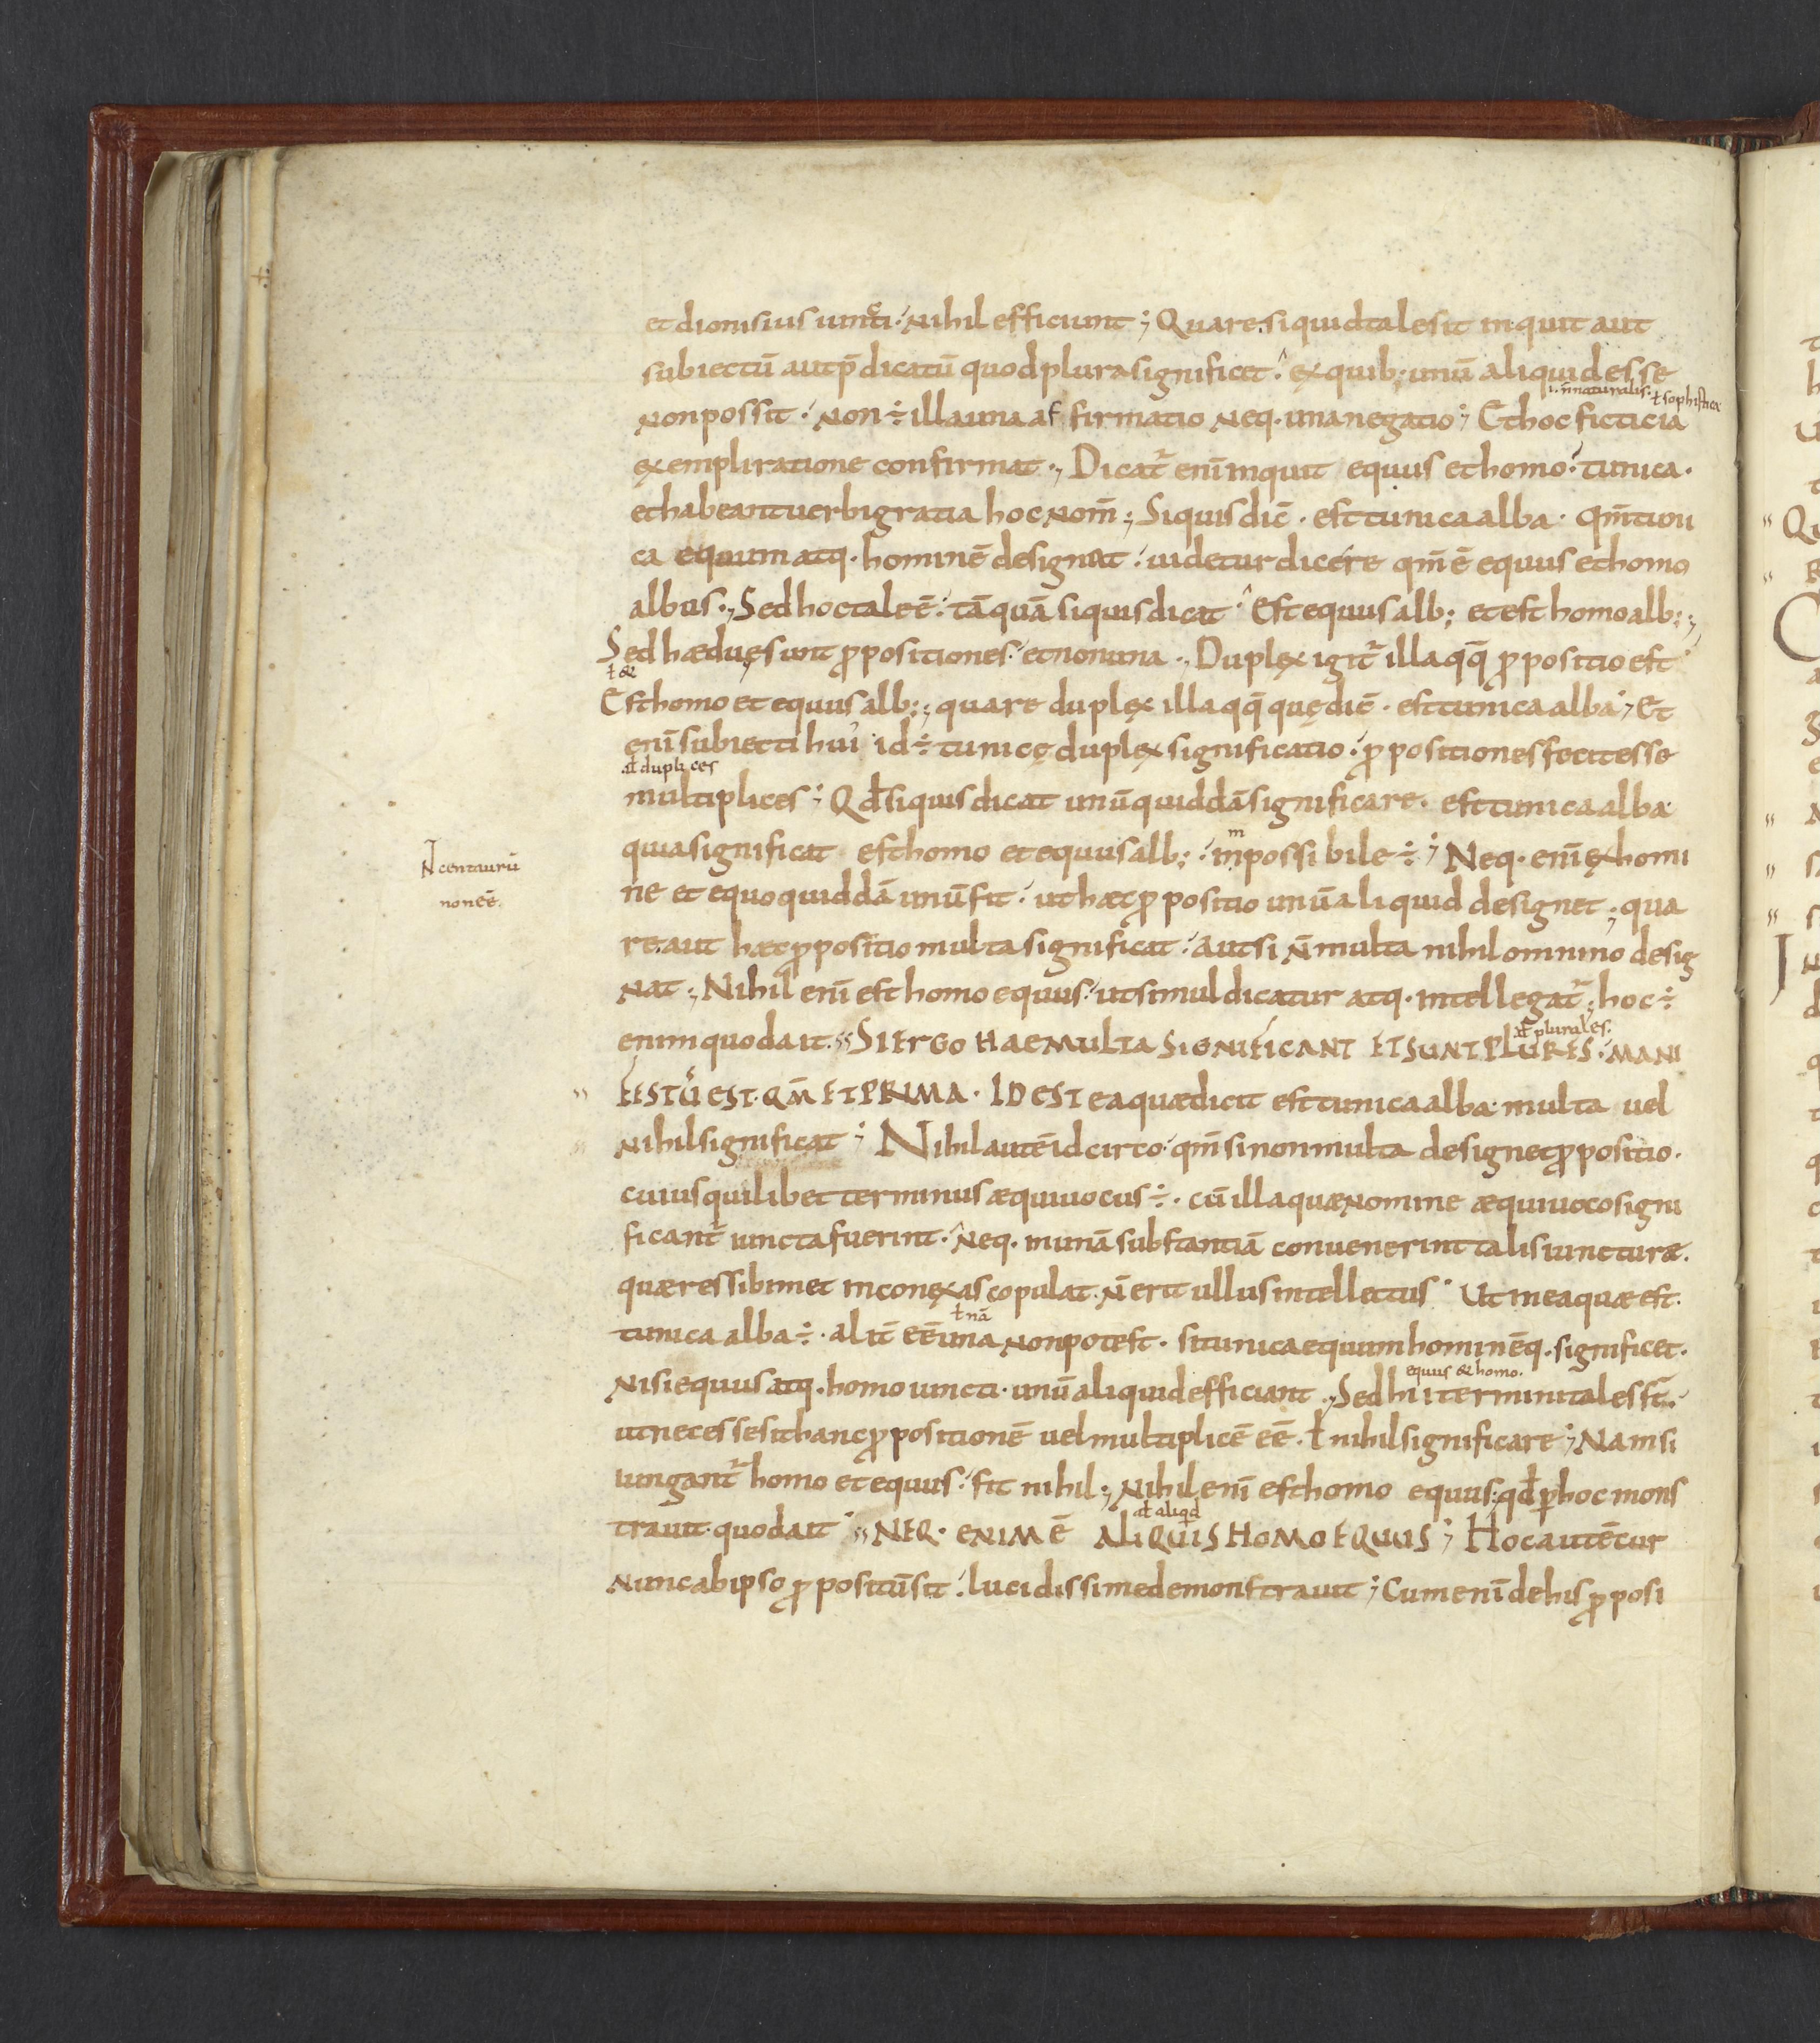 et dionisius iuncti · Nihil efficiunt ; Quare si quid tale sit inquit aut
subiectū aut p̄dicatū quod plura significet · ex quib; unū aliquid esse
i. ñ naturalis · ł sophistica
non possit · Non ÷ illa una affirmatio neq· una negatio ; Et hoc ficticia
exempli ratione confirmat ; Dicat᷑ eni̅ inquit equus et homo · tunica ·
et habeant uerbi gratia hoc nom̄ ; Si quis dic̄ · est tunica alba · qm̄ tuni
ca equum atq· hominē designat · uidetur dicere qm̄ ē equus et homo
albus ; Sed hoc tale ē · tāquā si quis dicat · Est equus alb; et est homo alb; ;
Sed hæ duę sunt ꝓpositiones · et non una ; Duplex igit᷑ illa qq̄ ꝓpositio est
ł &
Est homo et equus alb; ; quare duplex illa qq̄ quę dic̄ · est tunica alba ; Et
eni̅ subiecti hui᾽ id ÷ tunicę duplex significatio · ꝓpositiones fecit esse
at duplices
multiplices ; Qđ si quis dicat unū quiddā significare · est tunica alba
quia significat est homo et equus alb; · inpossibile ÷ ; Neq· eni̅ ex homi
m
N centaurū
non eē ·
ne et equo quiddā unū fit · ut hæc ꝓpositio unū aliquid designet ; qua
re aut hæc ꝓpositio multa significat · aut si n̄ multa nihil omnino desig
nat ; Nihil eni̅ est homo equus · ut simul dicatur atq· intellegat᷑ ; hoc ÷
at plurales ·
enim quod ait · SI ERGO HAE MULTA SIGNIFICANT ET SUNT PLURES · MANI
FESTŪ EST · QM̄ ET PRIMA · ID EST ea quæ dicit est tunica alba multa uel
nihil significat ; Nihil autē idcirco · qm̄ si non multa designet ꝓpositio ·
cuius quilibet terminus æquiuocus ÷ · cū illa quæ nomine æquiuoco signi
ficant᷑ iuncta fuerint · Neq· in unā substantiā conuenerint talis iuncturæ ·
quæ res sibimet inconexas copulat · n̄ erit ullus intellectus · Ut in ea quæ est ·
ł nā
tunica alba ÷ · alit̄ eē una non potest · si tunica equum hominēq· significet ·
equus & homo ·
nisi equus atq· homo iuncti · unū aliquid efficiant ; Sed hii termini tales st̄ ·
ut necesse sit hanc ꝓpositionē uel multiplicē eē · ł nihil significare ; Nam si
iungant᷑ homo et equus · fit nihil ; Nihil eni̅ est homo equus · qđ p̱ hoc mons
at aliqd
trauit quod ait · NEQ· ENIM Ē ALIQUIS HOMO EQUUS ; Hoc autē cur
nunc ab ipso ꝓpositū sit · lucidissime demonstrauit ; Cum eni̅ de his ꝓposi